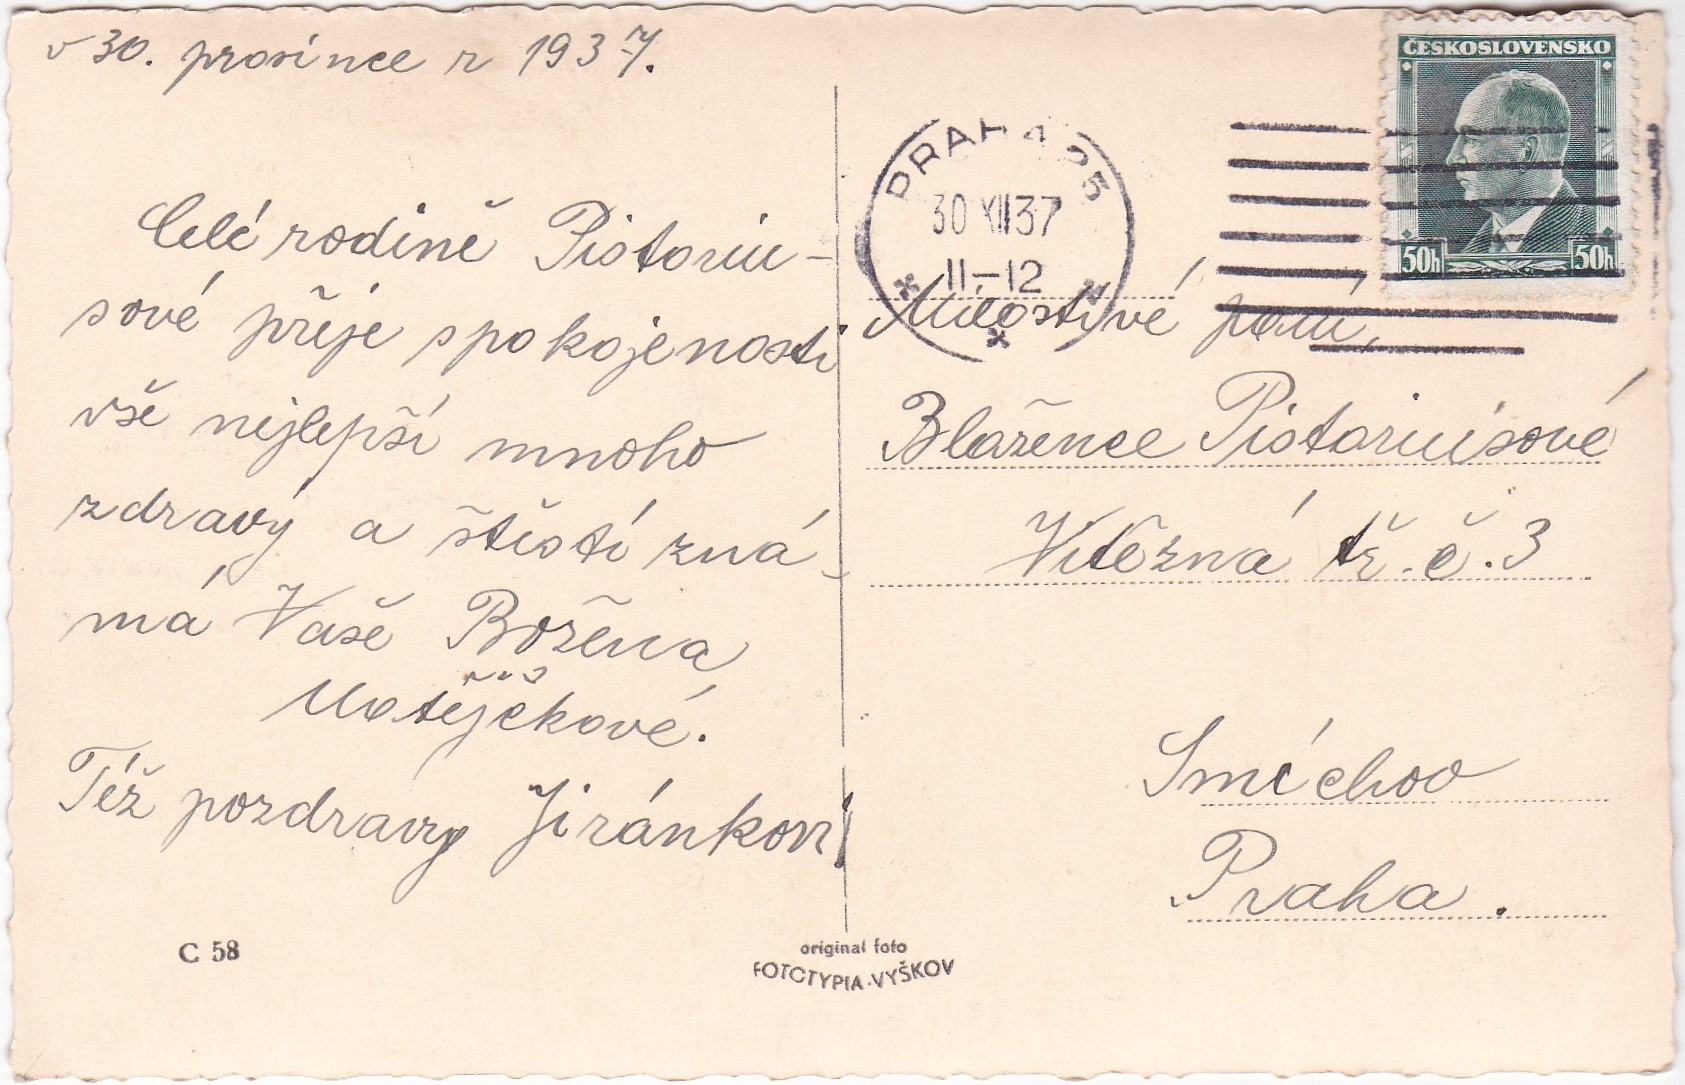 v 30. prosince r 1937.
Celé rodině Pistoriu-
sové přeje spokojenosti
vše nejlepší mnoho
zdravý a štěstí zná-
má Vaše Božena
Matějčkové.
Též pozdravy Jiránkovi
C 58
original foto
FOTOTYPIA-VYŠKOV
ČESKOSLOVENSKO
50h 50h
PRAHA 25
30 XII 37
11-12
Milostivé paní,
Blažence Pistoriusové
Vítězná tř. č. 3
Smíchov
Praha.